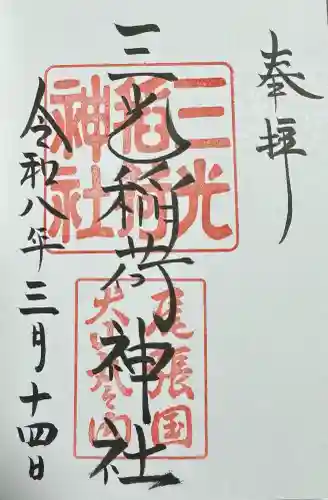 奉拝
三光稲荷神社
令和八年三月十四日
三光
稲荷
神社
尾張国
犬山